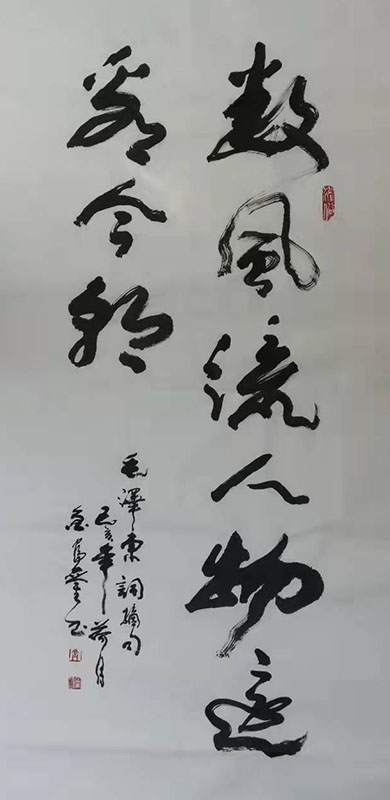 數風流人物還
看今朝
毛澤東詞摘句
己亥年荷月